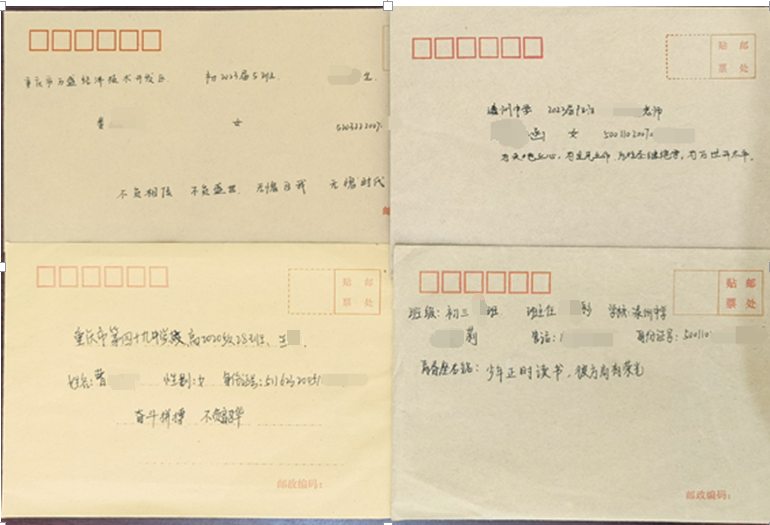 重庆市万盛经济技术开发区 初2023届5班
女
不负韶华 不负盛世 无愧自我 无愧时代
邮
贴 邮
票 处
2023届 老师
女 500110200
为天地立心,为生民立命,为往圣继绝学,为万世开太平.
贴 邮
票 处
重庆市第四十九中学校,高2020级28班
姓名:曹 性别:女 身份证号:511623200
奋斗拼搏 不负韶华
邮政编码:
贴 邮
票 处
班级:初三 班 班主任 彤 学校:
莉 电话:1 身份证号:50011
青春座右铭:少年正时读书,彼方尚有荣光
邮政编码: